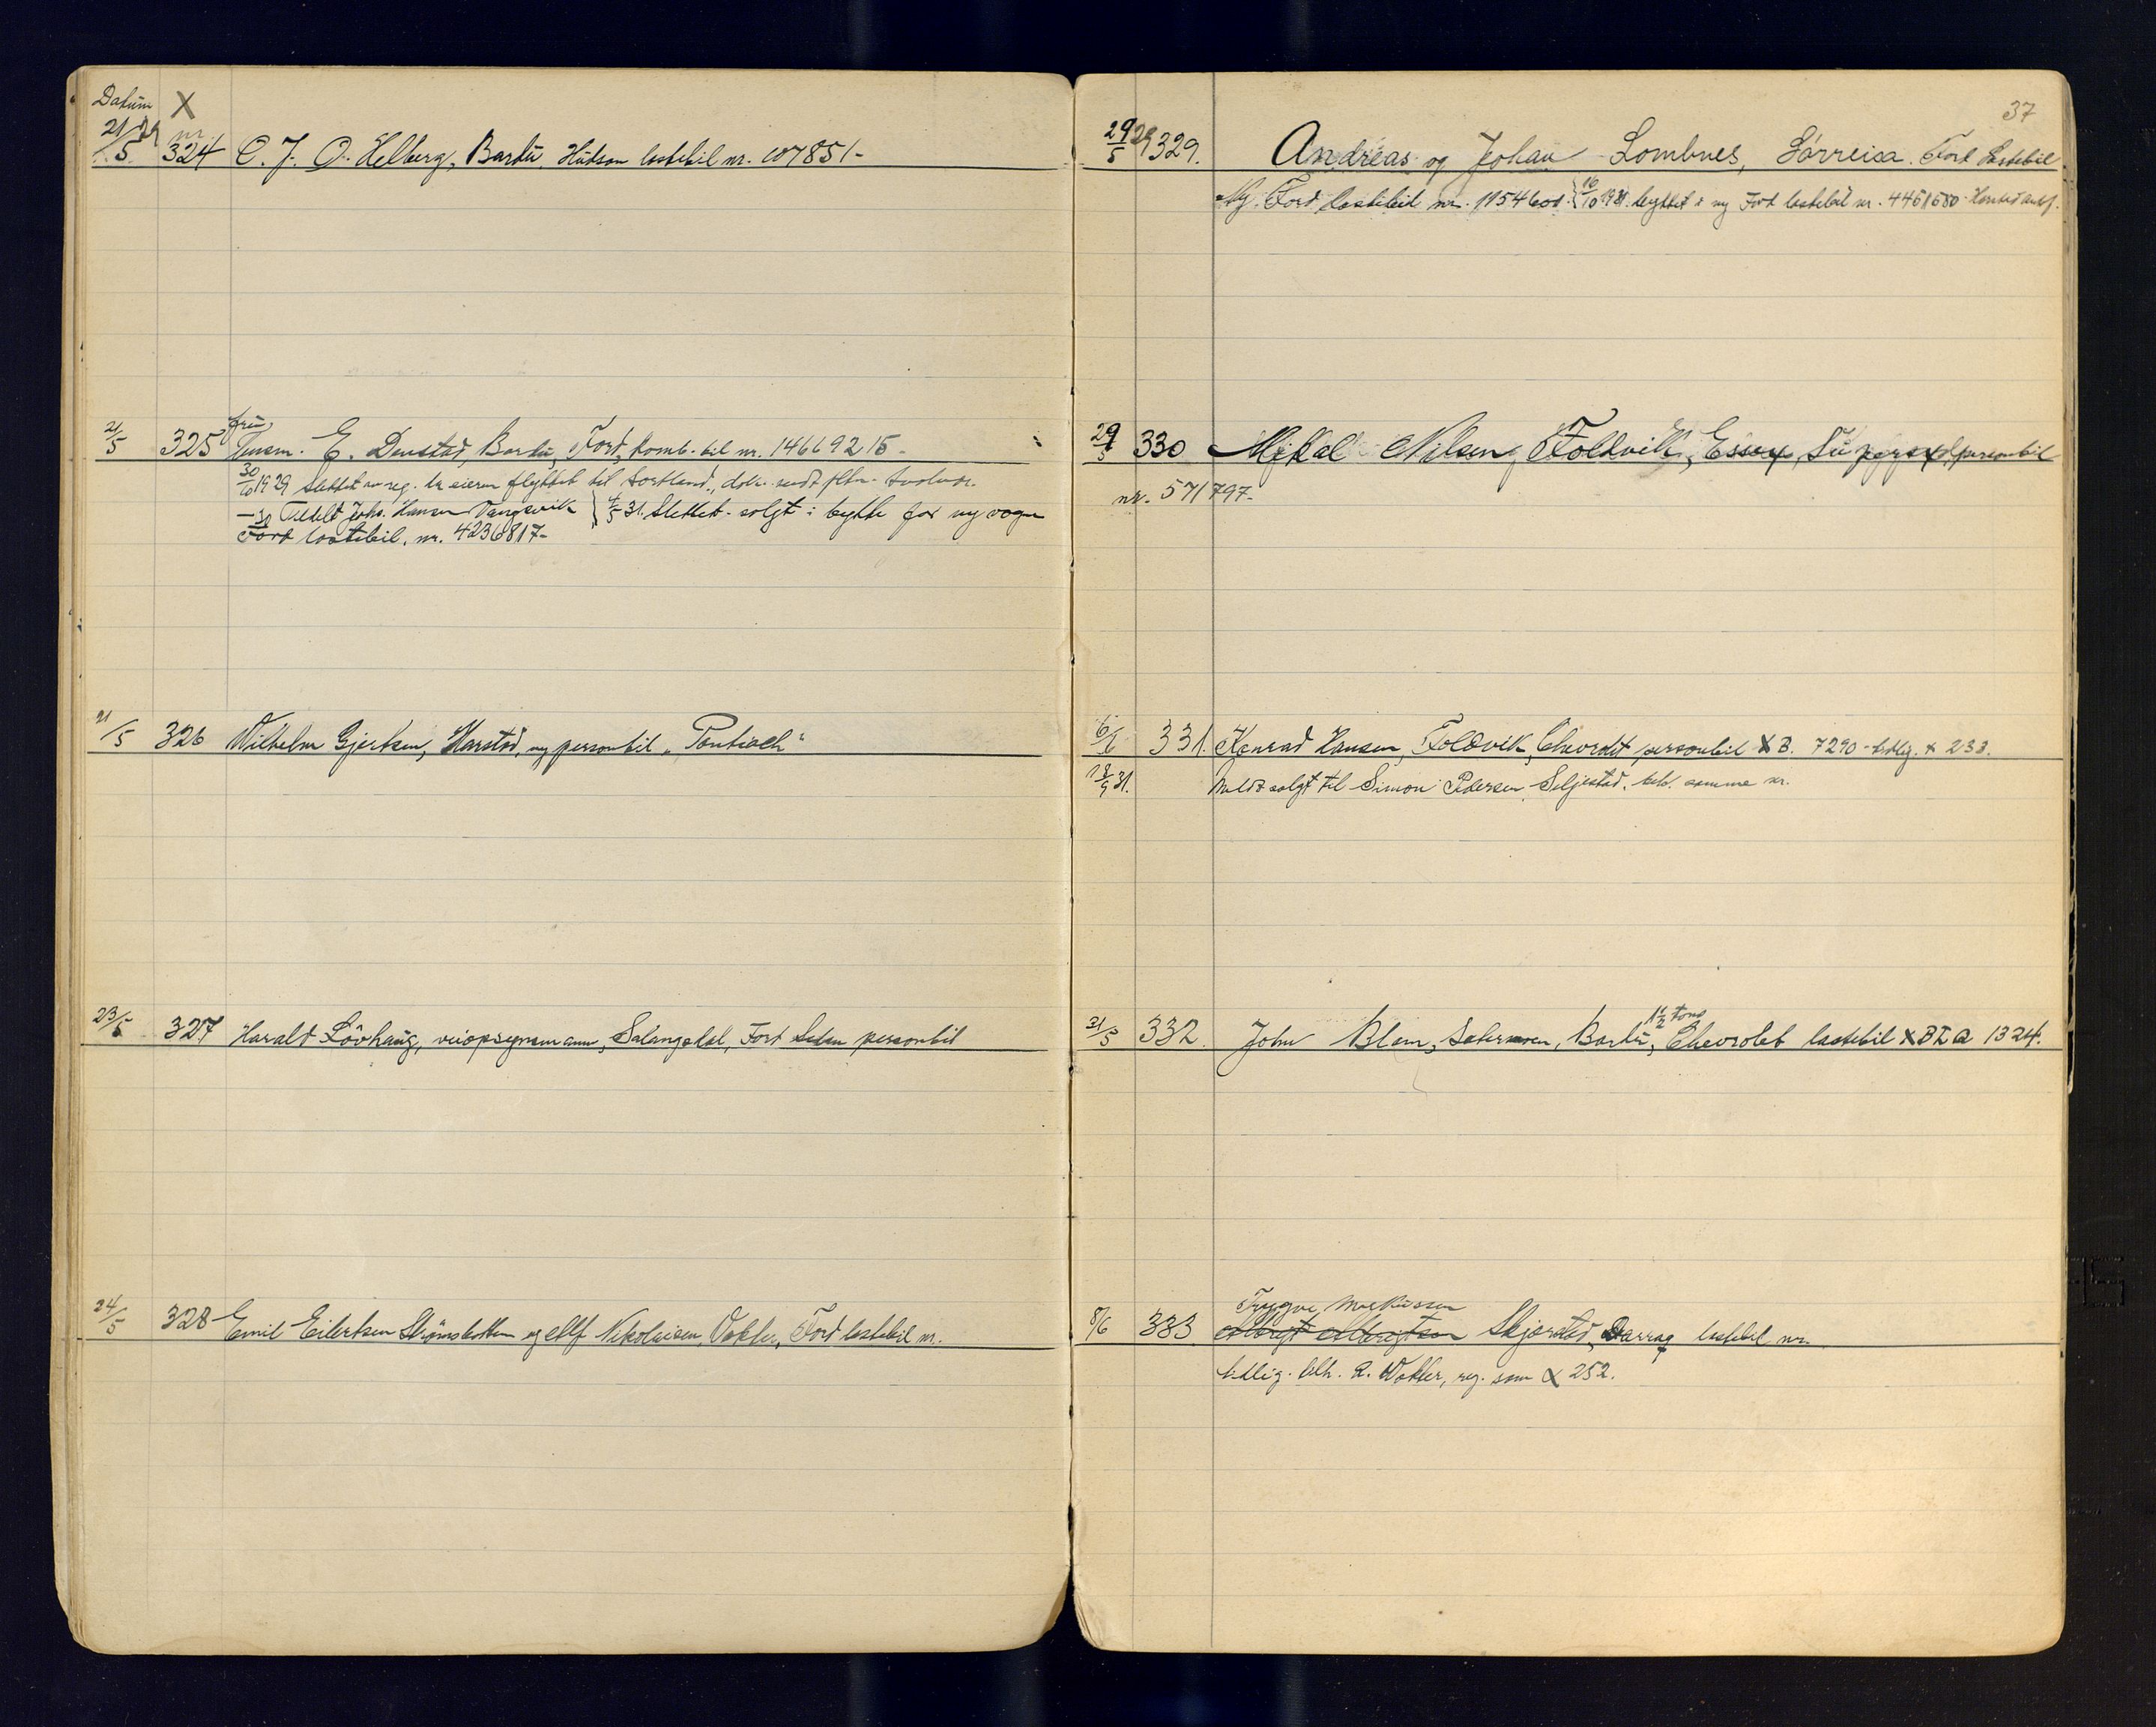 Datum X
21/5 29 nr. 324 O. J. O. Helberg, Bardu, Hudson lastebil nr. 107851-
21/5 325 fru E. Denstad, Bardu, Ford, komb. bil nr. 14669215-
30/10 1929 slettet av reg. da eieren flyttet til Sortland, dok. sendt
Tildelt Johs. Hansen Vangsvik } 4/5 31. Slettet - solgt i bytte for ny vogn
Ford lastebil, nr. 4236817-
21/5 326 Wilhelm Gjertsen, Harstad, ny personbil „Pontiach"
23/5 327 Harald Lövhaug, veiopsynsmann, Salangsdal, Ford Sedan personbil
24/5 328 Emil Eilertsen Strömsbotten og Alf Nikolaisen, Ford lastebil nr.
37
29/5 29 329. Andreas og Johan Lombnes, Sörreisa. Ford Lastebil
Ny. Ford lastebil nr. 1154601. { 16/10 1931. byttet i ny Ford lastebil nr. 4461580
29/5 330 Mikal Nilsen, Foldvik, Essex, personbil
nr. 571797-
6/6 331. Konrad Hansen, Foldvik, Chevrolet personbil X B. 7290 - tidlig. X 233.
18/9 31. Meldt solgt til Simon Pedersen, Seljestad. beh. samme nr.
31/5 332. John Blom, Setermoen, Bardu, 1 1/2 tons Chevrolet lastebil X 1324.
8/6 333 Trygve Markussen
Albrigt Albrigtsen Skjærstad, Darraq lastebil nr.
tidlig. tilh. A. Wakler, reg. som X 252.